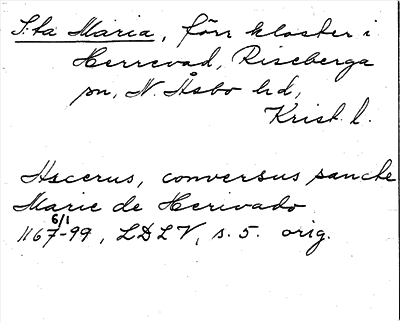 S:ta Maria, förr kloster i
Herrevad, Riseberga
sn, N. Åsbo hd,
Krist. l.
Ascerus, conversus sancte
Marie de Herivado
6/1
1167-99, LDLV, s. 5. orig.